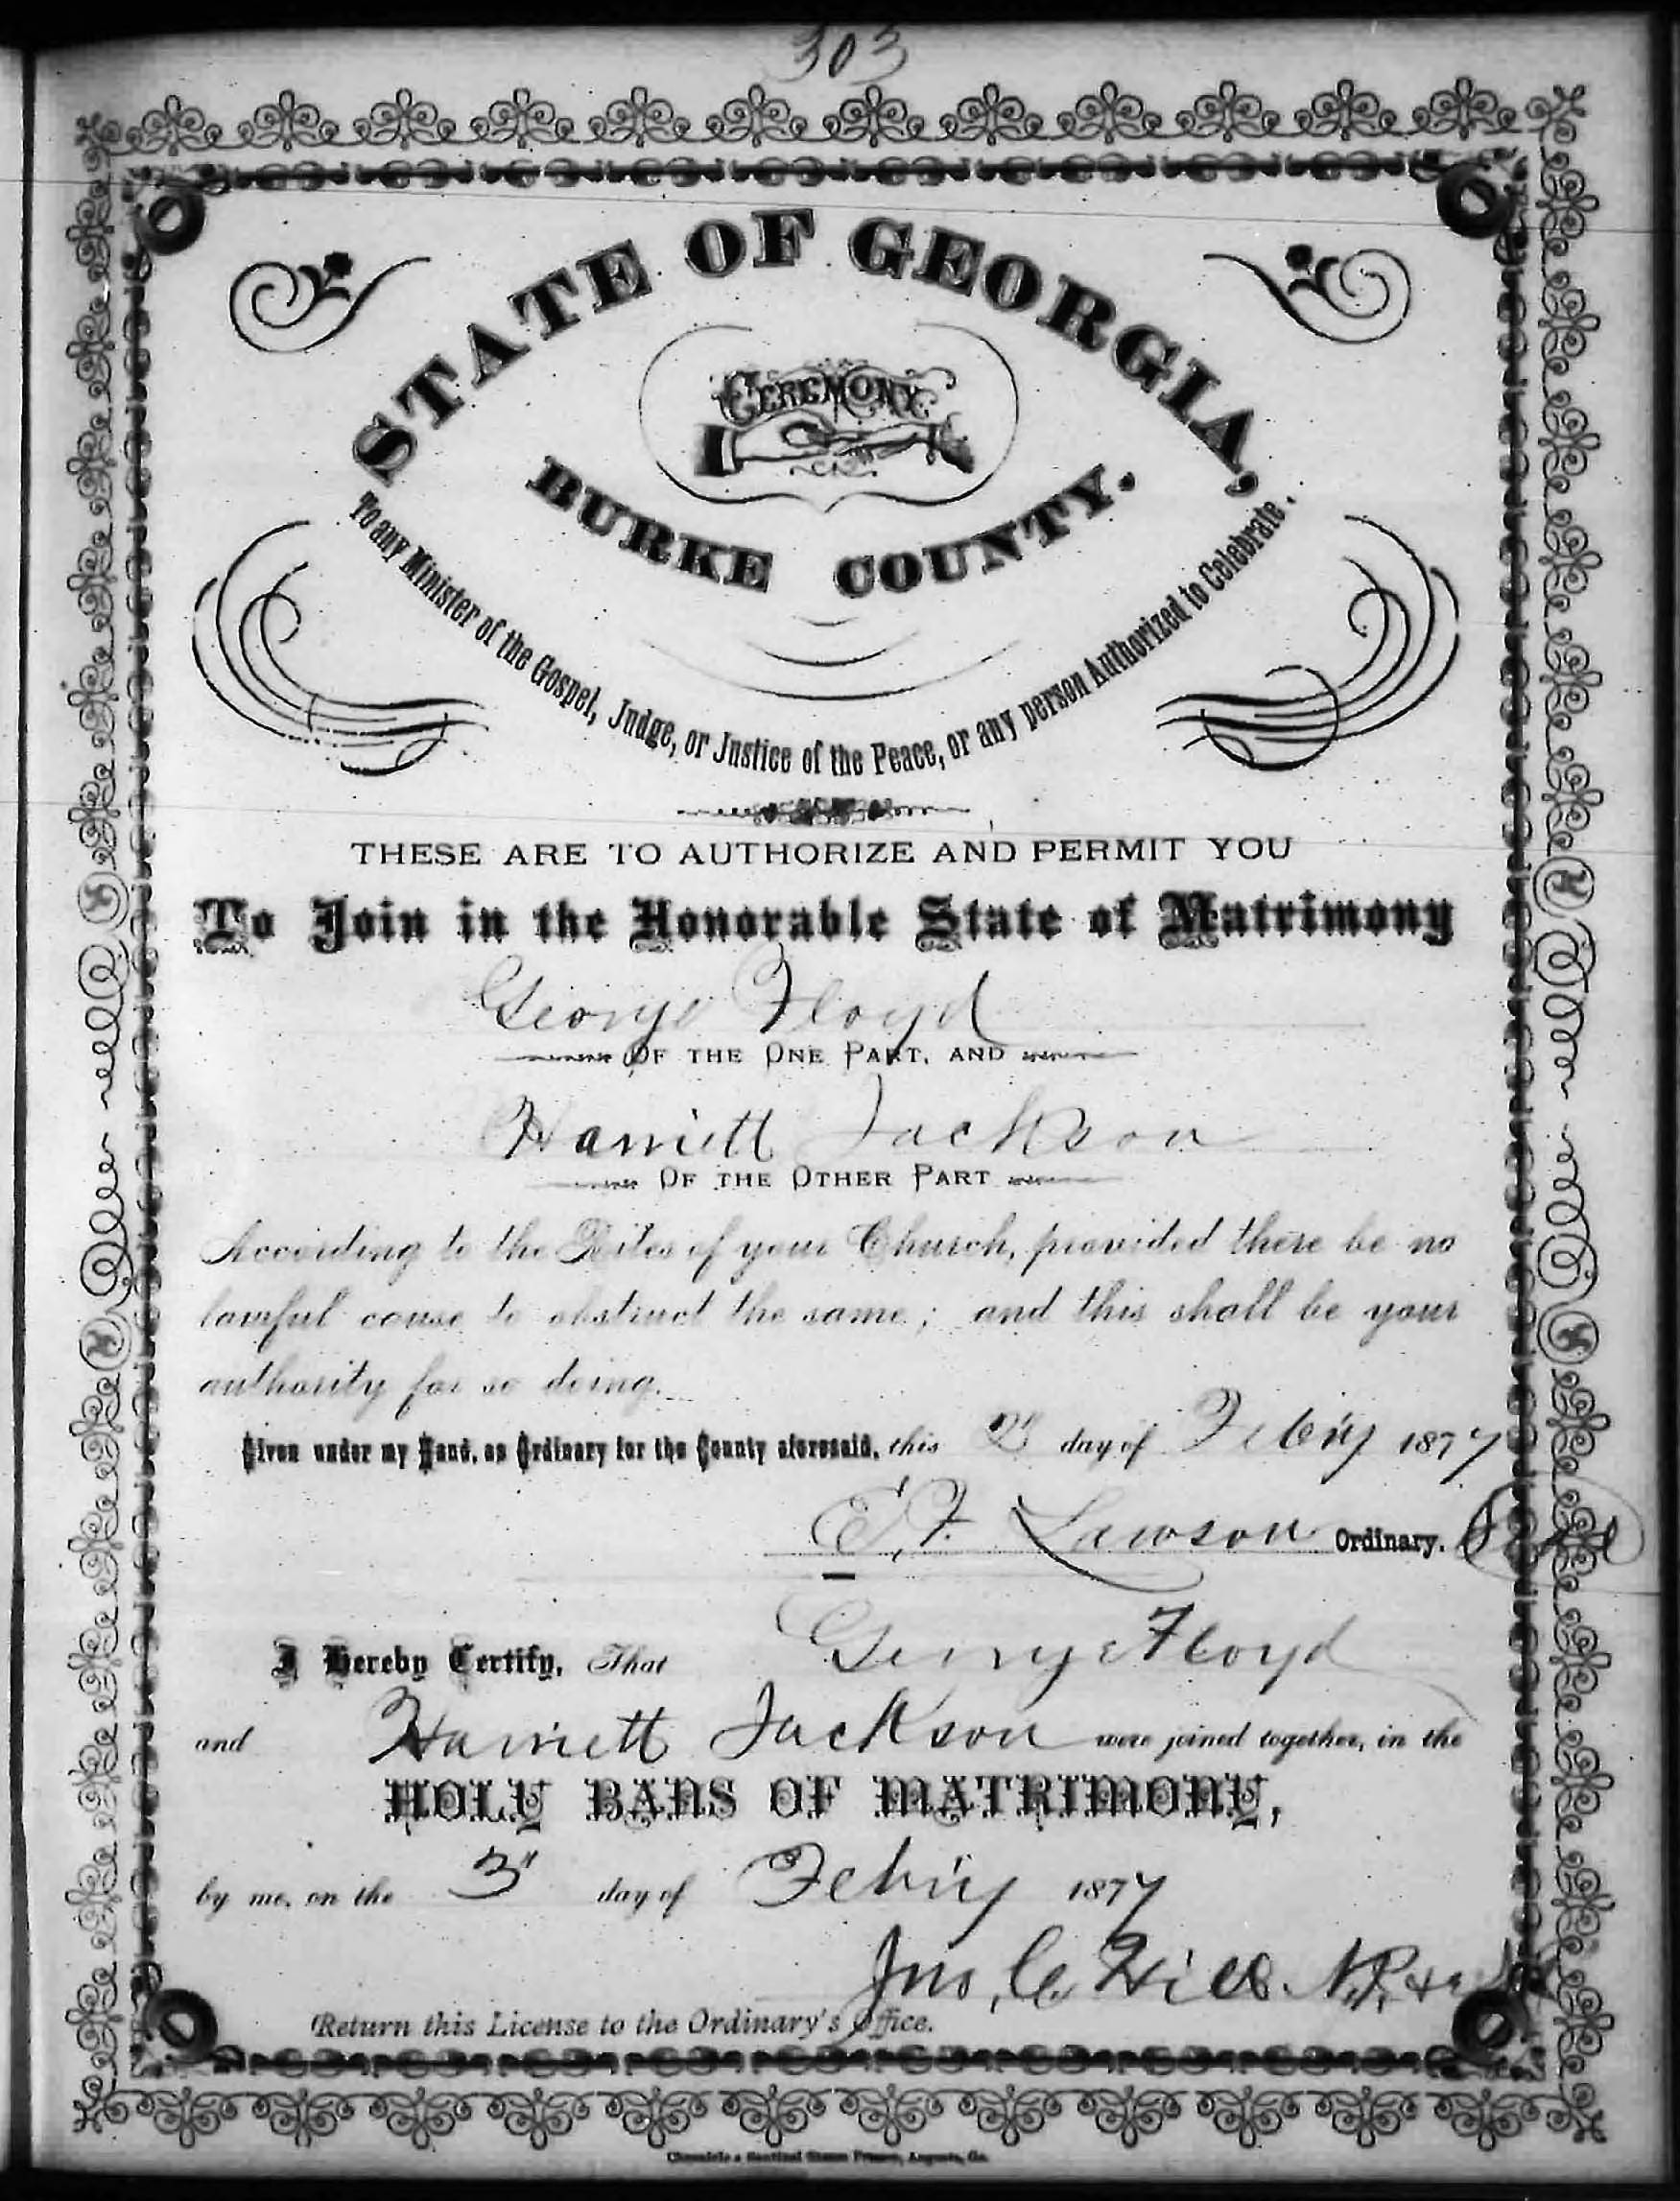 303
STATE OF GEORGIA,
CEREMONY
BURKE COUNTY.
To any Minister of the Gospel, Judge, or Justice of the Peace, or any person Authorized to Celebrate.
THESE ARE TO AUTHORIZE AND PERMIT YOU
To Join in the Honorable State of Matrimony
George Floyd
OF THE ONE PART, AND
Harriett Jackson
OF THE OTHER PART
According to the Rites of your Church, provided there be no
lawful cause to obstruct the same; and this shall be your
authority for so doing.
Given under my Hand, as Ordinary for the County aforesaid, this 2" day of Feb'ry 1877
E. F. Lawson Ordinary.
I Hereby Certify, That George Floyd
and Harriett Jackson were joined together, in the
HOLY BANS OF MATRIMONY,
by me, on the 3" day of Feb'ry 1877
Jno, C. Hill. N.P.
Return this License to the Ordinary's Office.
Chronicle & Sentinel Steam Presses, Augusta, Ga.